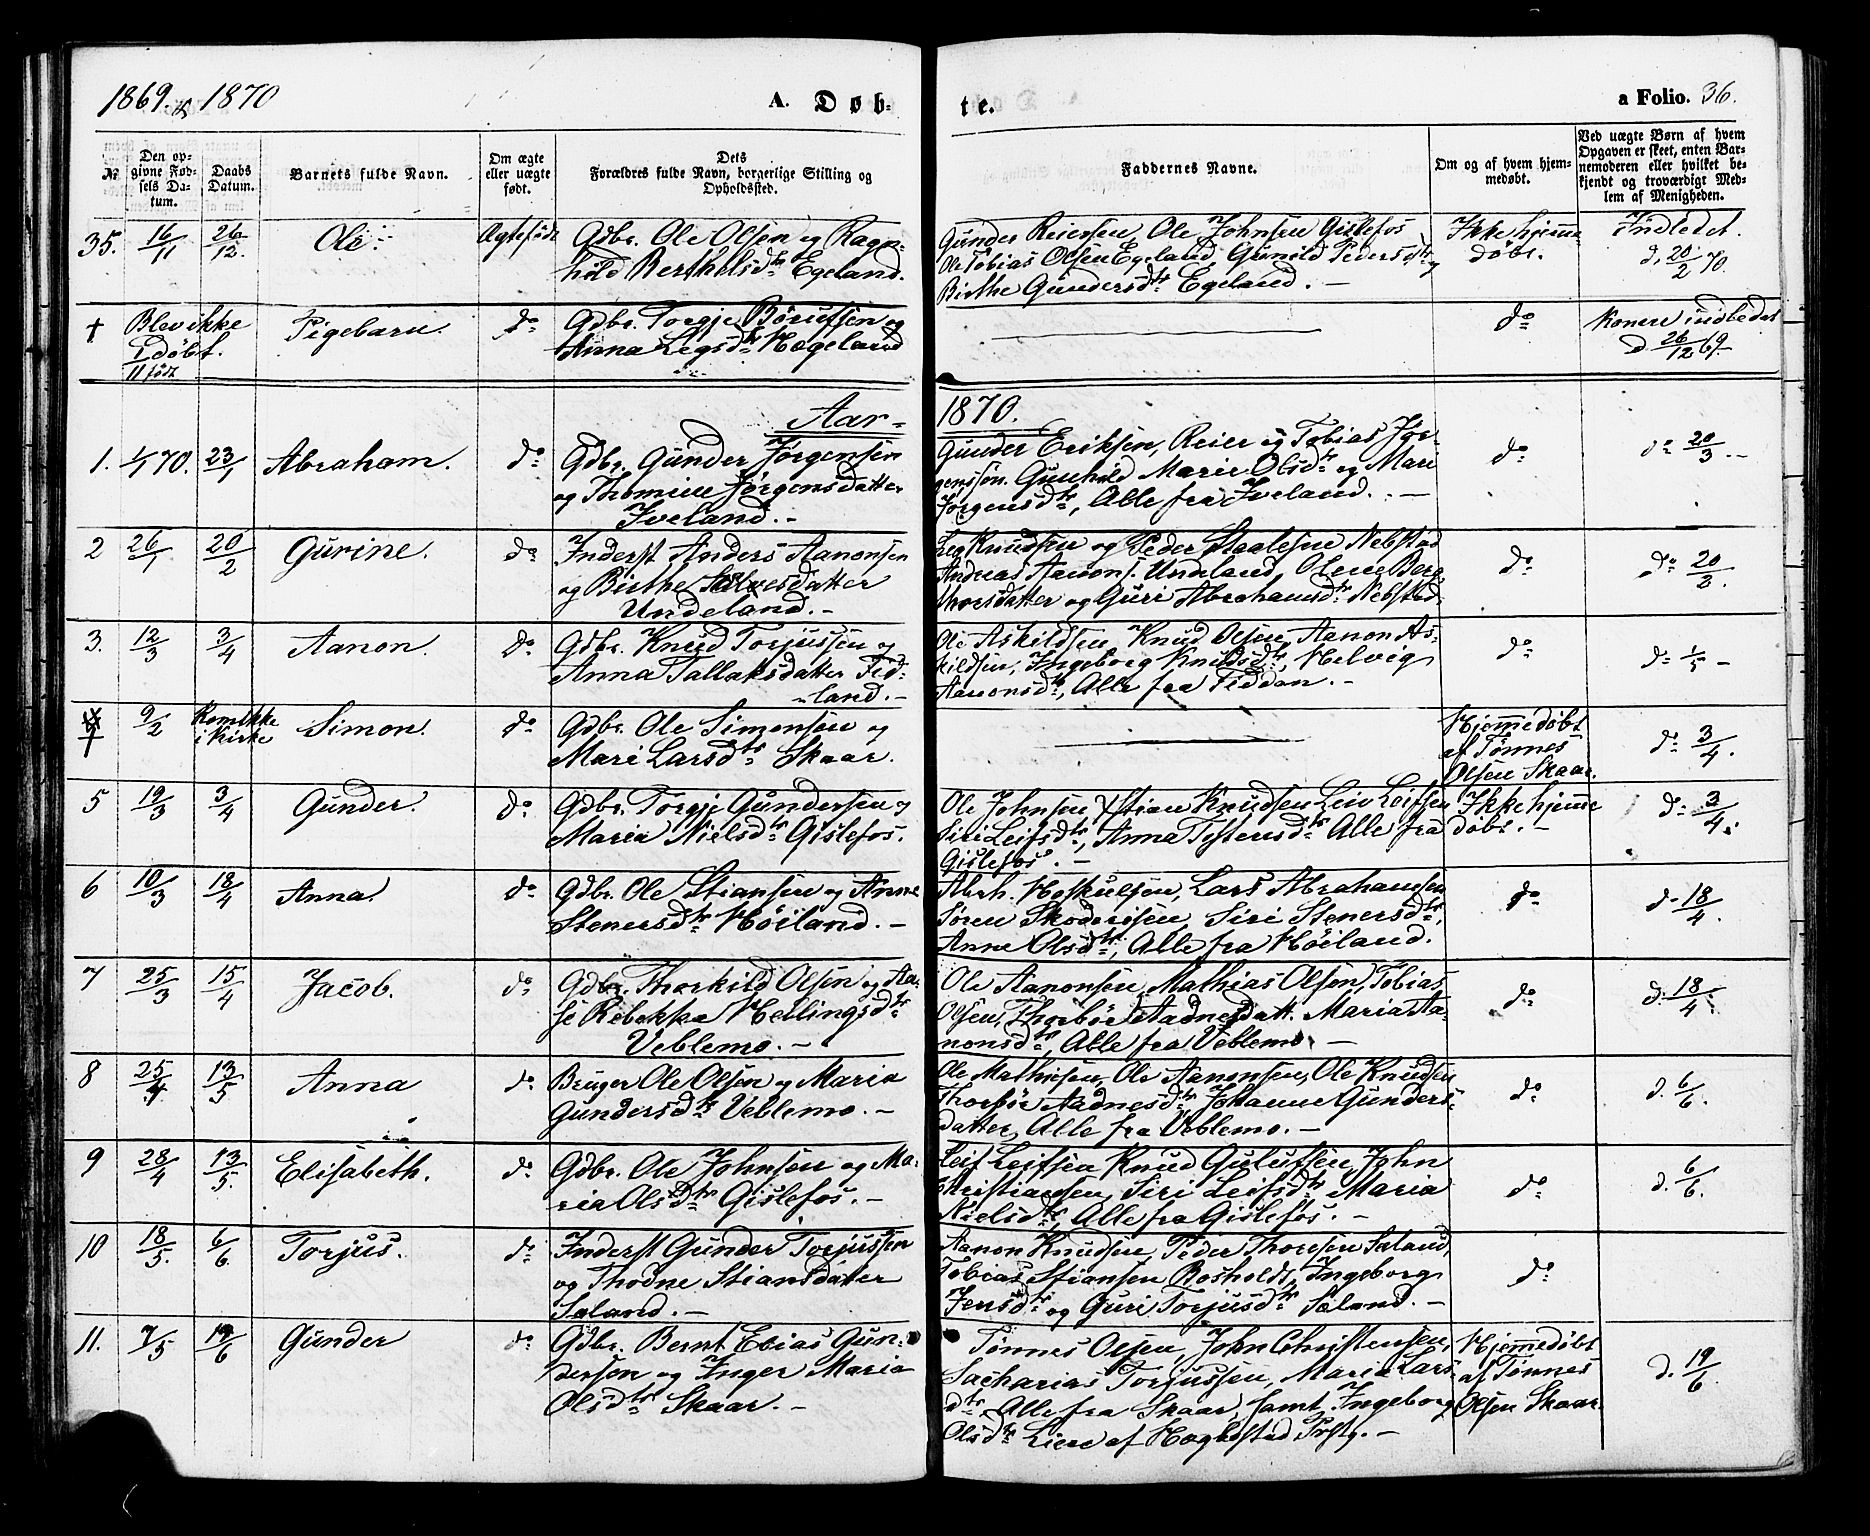 1869. & 1870
A. Døb-
te.
a Folio. 36.
№
Den op-
givne Fød-
sels Da-
tum.
Daabs
Datum.
Barnets fulde Navn.
Om ægte
eller uægte
født.
Dets
Forældres fulde Navn, borgerlige Stilling og
Opholdssted.
Faddernes Navne.
Om og af hvem hjem-
medøbt.
Ved uægte Børn af hvem
Opgaven er skeet, enten Bar-
nemoderen eller hvilket be-
kjendt og troværdigt Med-
lem af Menigheden.
35. 16/11 26/12. Ole. Ægtefødt
Gdbr. Ole Olsen og Ragn-
hild Berthelsdtr Egeland.
Gunder Reiersen, Ole Johnsen Gislefos
Ole Tobias Olsen Egeland, Gunild Pedersdtr og
Birthe Gundersdtr Egeland. –
Ikke hjemme
døbt.
Indledet.
d. 20/2 70.
† Blev ikke
døbt.
11 født
Pigebarn. do
Gdbr. Torgje
Anna Hægeland
do
Konen indledet
d 26/12 69.
Aar-
1870.
1. 1/1 70. 23/1 Abraham. do
Gdbr. Gunder Jørgensen
og Thomine Jørgensdatter
Iveland. –
Gunder Eriksen, Reier og Tobias Jør-
genssøn. Gunhild Marie Olsdtr og Mari
Jørgensdtr, Alle fra Iveland. –
do
do 20/3. –
2 26/1 20/2 Gurine. do
Inderst Anders Aanonsen
og Birthe Salvesdatter
Undeland. –
Leg Knudsen og Peder Staalesen Nebstad
Andreas Aanons. Undeland, Olene Berg
thorsdatter og Guri Abrahamsdtr Nebstad
do
do 20/3.
3. 12/3 3/4 Aanon. do
Gdbr. Knud Torjussen og
Anna Tallaksdatter Fid-
land. –
Ole Askildsen, Knud Olsen, Aanon As-
kildsen, Ingeborg Knudsdtr, Helvig
Aanonsdtr, Alle fra Fiddan. –
do
do 1/5 –
4 † 9/2 Kom ikke
i Kirke
Simon. do
Gdbr. Ole Simonsen og
Mari Larsdtr Skaar.
Hjemmedøbt
af Tønnes
Olsen Skaar.
do 3/4.
5 19/3 3/4 Gunder. do
Gdbr. Torgje Gundersen og
Maria Nielsdtr Gislefos.
Ole Johnsen, Stian Knudsen Leiv Leifsen
Siri Leifsdtr, Anna dtr Alle fra
Gislefos. –
Ikke hjemme
døbt. –
do 3/4.
6 10/3 18/4 Anna. do
Gdbr. Ole Stiansen og Anne
Stenersdtr Høiland. –
Abrh. Hoskulsen, Lars Abrahamsen
Søren Siri Stenersdtr,
Anne Olsdtr, Alle fra Høiland.
do
d. 18/4.
7 25/3 15/4 Jacob. do
Gdbr. Thorkild Olsen og Aa-
se Rebekka Hellingsdtr
Veblemo. –
Ole Aanonsen, Mathias Olsen, Tobias
Olsen, Thorbør Aadnesdatt. Maria Aa-
nonsdtr, Alle fra Veblemo. –
do
d. 18/4.
8 25/4. 13/5 Anna do
Bruger Ole Olsen og Maria
Gundersdtr Veblemo. –
Ole Mathiesen, Ole Aanonsen, Ole Knudsen
Thorbør Aadnesdtr, Johanne Gunders-
datter, Alle fra Veblemo. –
do
d. 6/6.
9 28/4 13/5. Elisabeth. do
Gdbr. Ole Johnsen og Ma-
ria Olsdtr Gislefos. –
Leif Leifsen Knud Gulufsen, John
Christiansen, Siri Leifsdtr, Maria
Nielsdtr, Alle fra Gislefos. –
do
d. 6/6.
10 18/5. 6/6. Torjus. do
Inderst Gunder Torjussen
og Thodne Stiansdatter
Saland. –
Aanon Knudsen, Peder Thoresen Saland,
Tobias Stiansen Rosholdt, Ingeborg
Jensdtr og Guri Torjusdtr Saland. –
do
11. 7/5 19/6 Gunder do
Gdbr. Bernt Elias Gun-
derson og Inger Maria
Olsdtr Skaar. –
Tønnes Olsen, John Christensen,
Sacharias Torjussen, Maria Lars-
dtr, Alle fra Skaar, samt Ingeborg
Olsdtr Liene af Prstg. –
Hjemmedøbt
af Tønnes
Olsen Skaar.
d. 19/6.